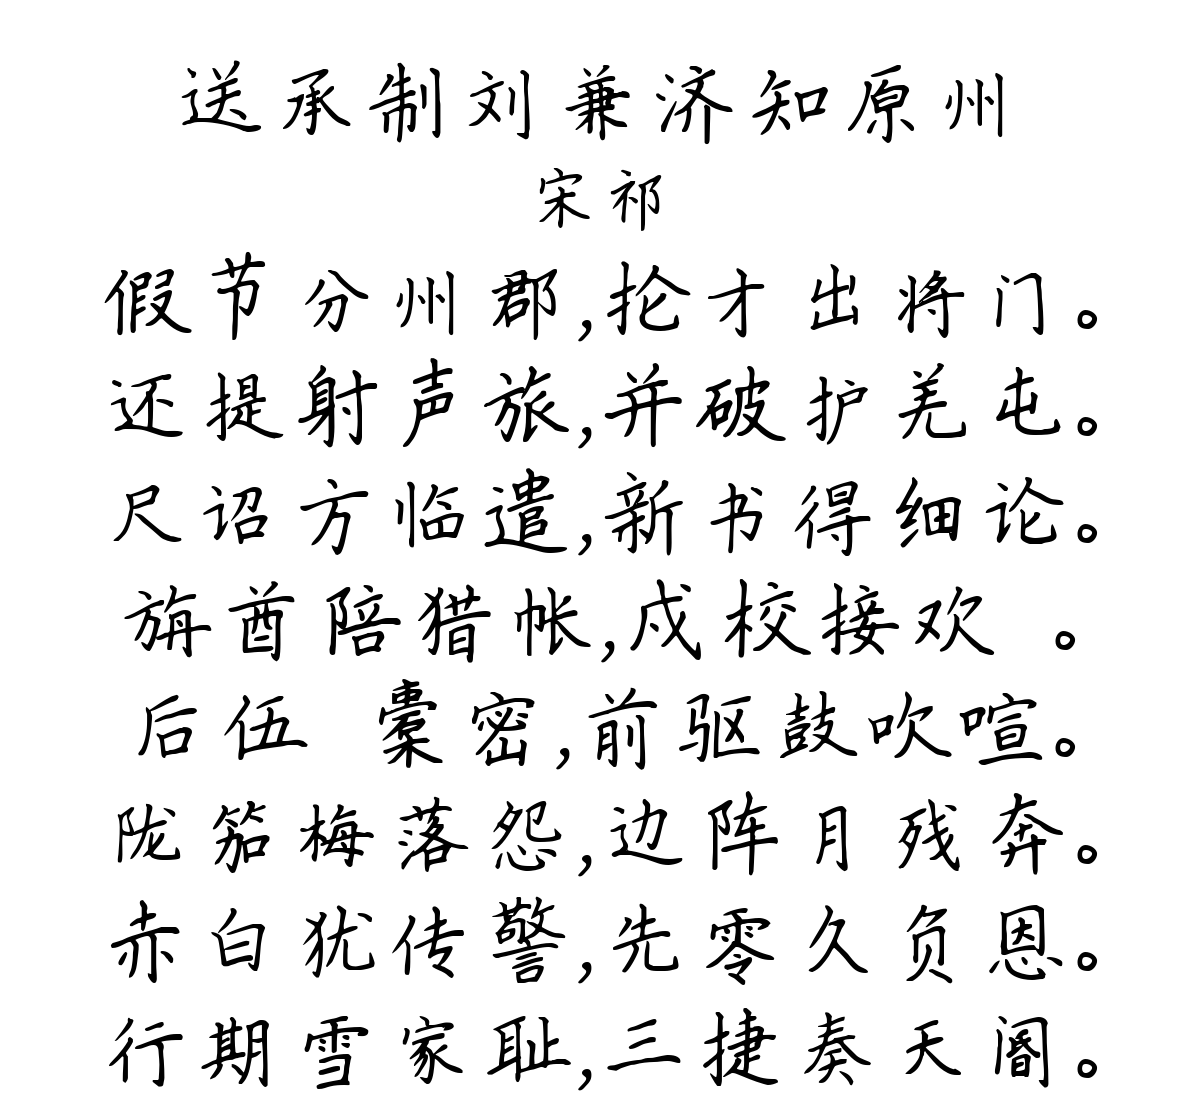 送承制刘兼济知原州
宋祁
假节分州郡,抡才出将门。
还提射声旅,并破护羌屯。
尺诏方临遣,新书得细论。
旃酋陪猎帐,戍校接欢 。
后伍 櫜密,前驱鼓吹喧。
陇笳梅落怨,边阵月残奔。
赤白犹传警,先零久负恩。
行期雪家耻,三捷奏天阍。